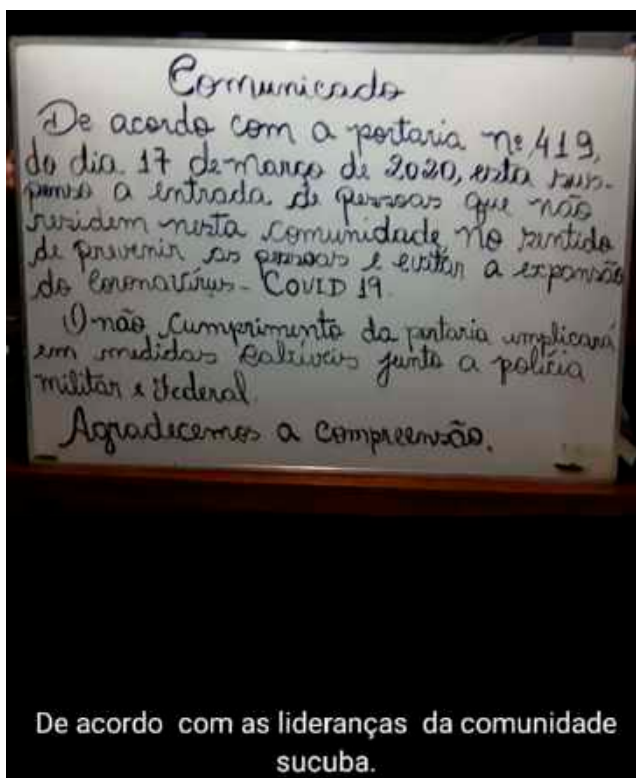 Comunicado
De acordo com a portaria nº 419,
do dia 17 de março de 2020, esta sus-
penso a entrada de pessoas que não
residem nesta comunidade, no sentido
de prevenir as pessoas e evitar a expansão
do Coronavírus - COVID 19.
O não cumprimento da portaria implicará
em medidas cabíveis junto a polícia
militar e Federal.
Agradecemos a compreensão.
De acordo com as lideranças da comunidade
sucuba.